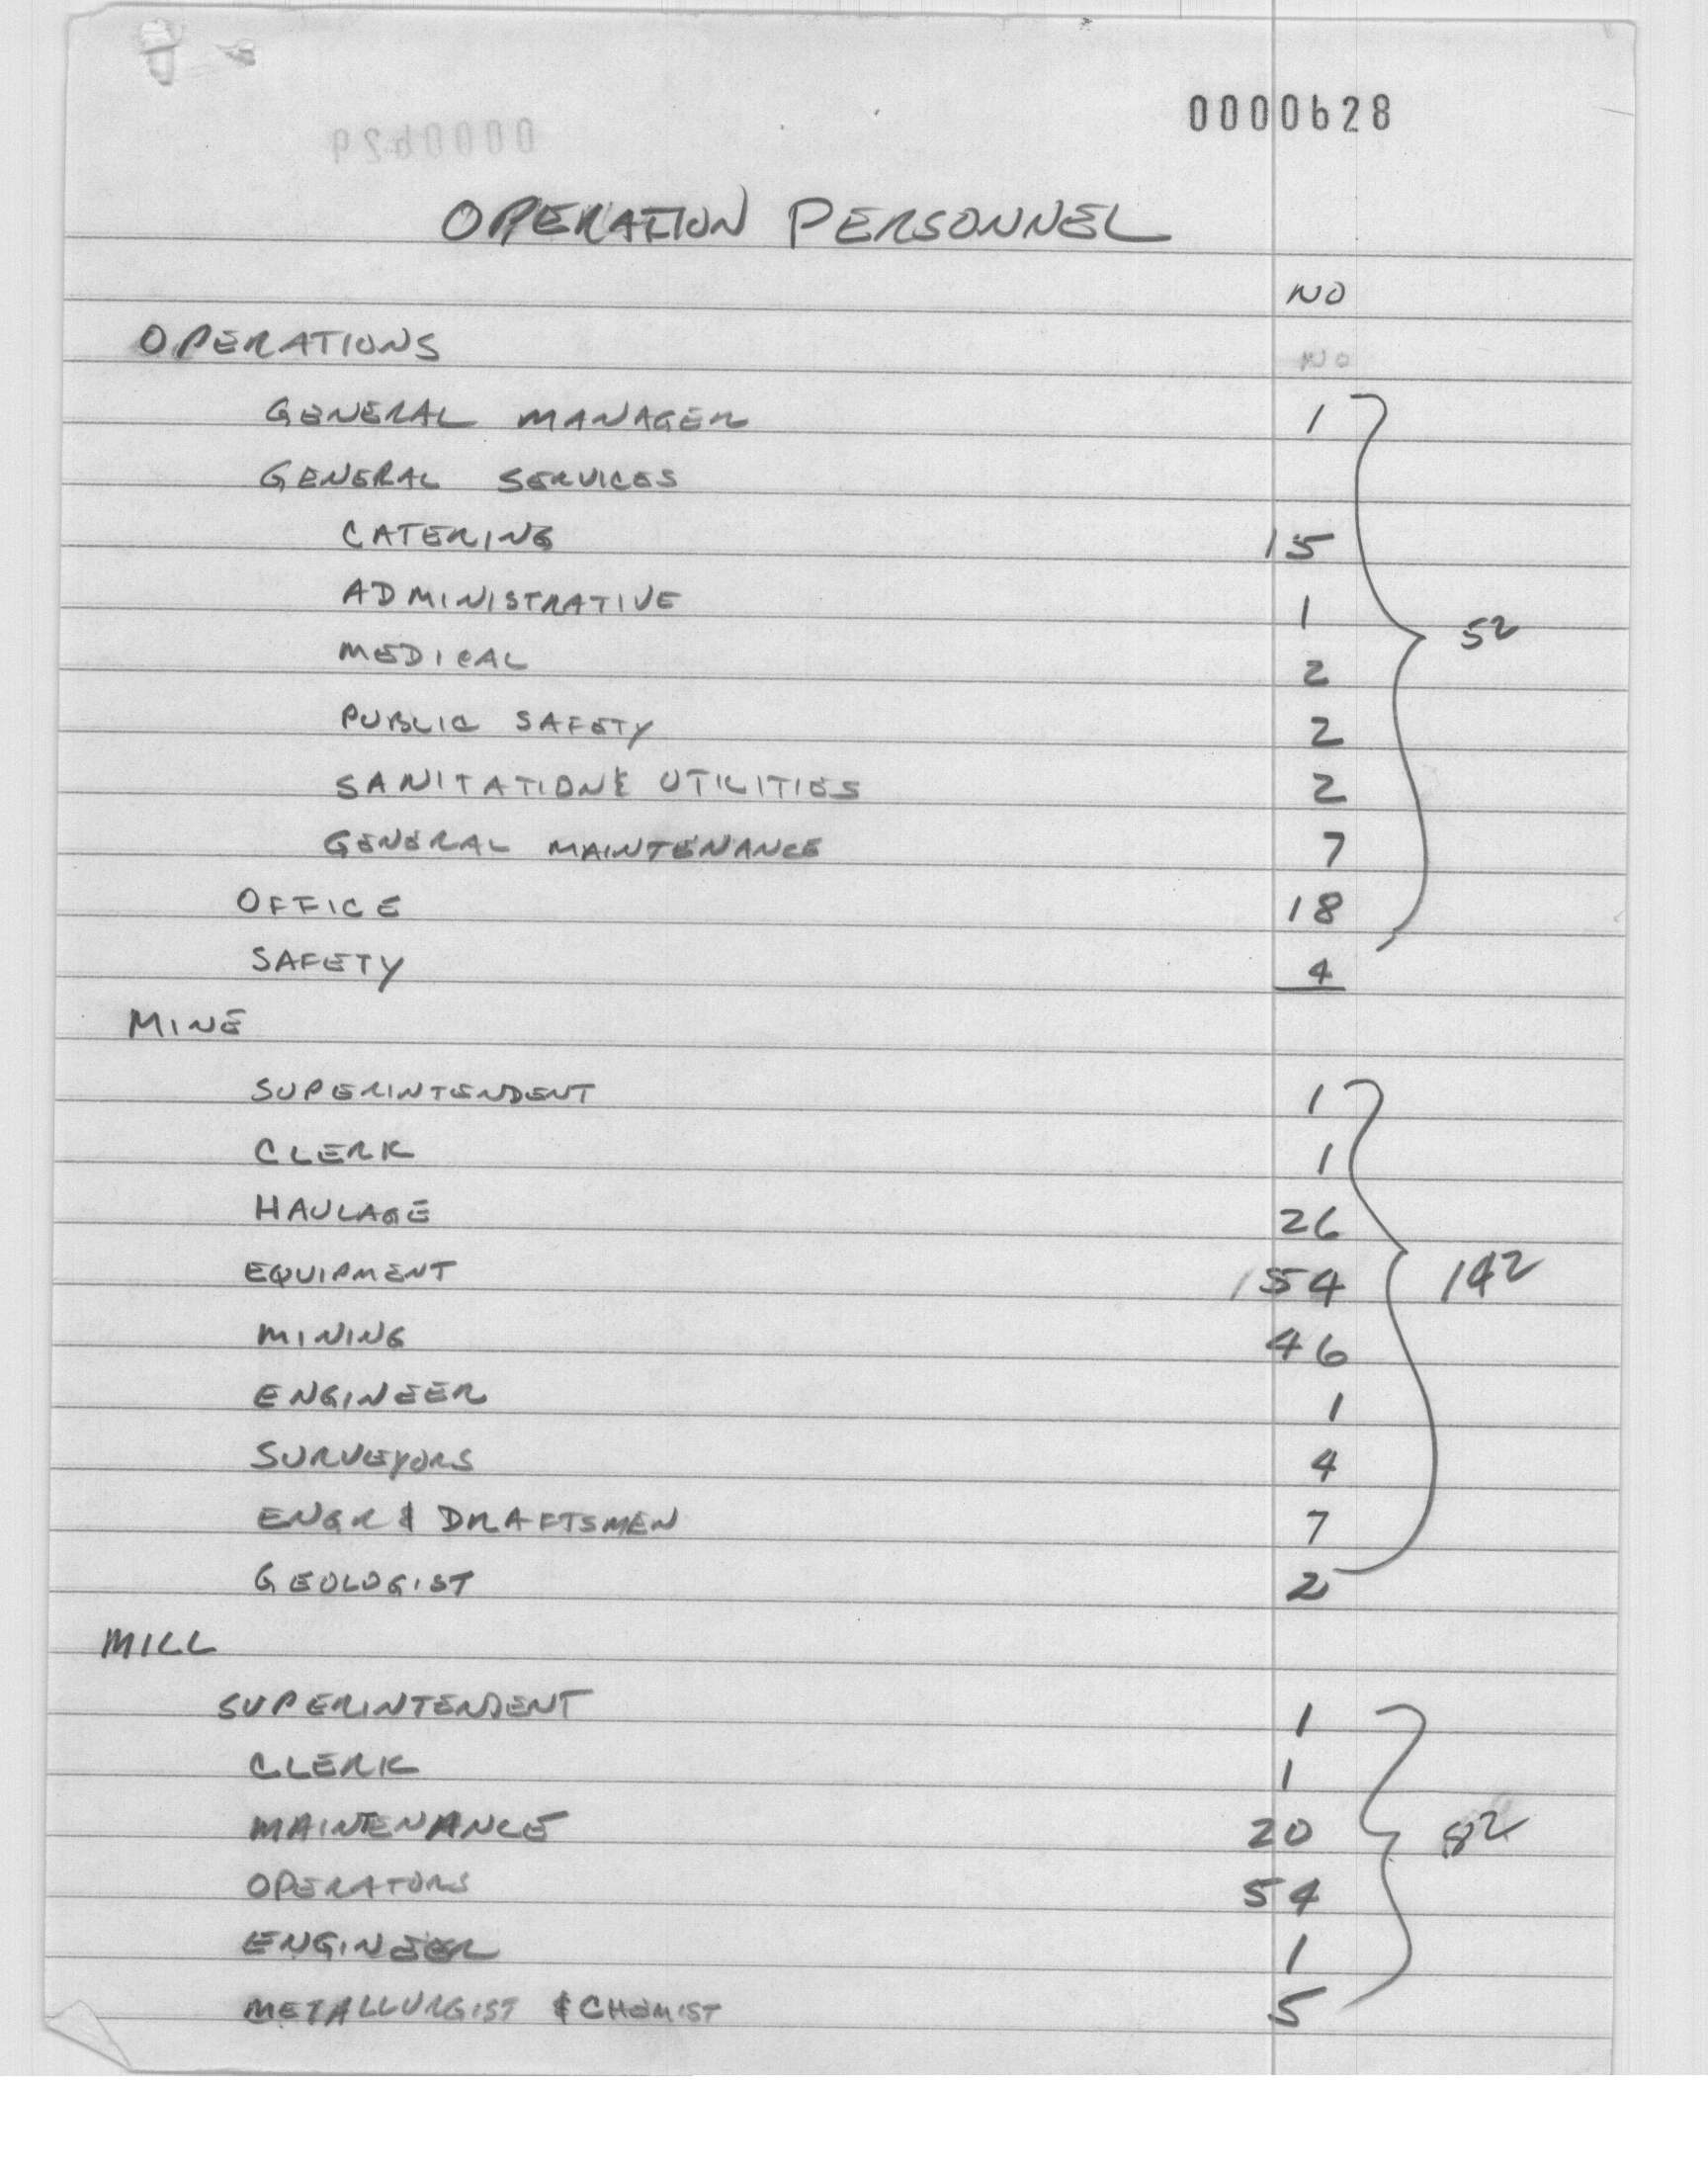 0000628
0000629
OPERATION PERSONNEL
NO
OPERATIONS NO
GENERAL MANAGER 1
GENERAL SERVICES
CATERING 15
ADMINISTRATIVE 1
MEDICAL 2
52
PUBLIC SAFETY 2
SANITATION & UTILITIES 2
GENERAL MAINTENANCE 7
OFFICE 18
SAFETY 4
MINE
SUPERINTENDENT 1
CLERK 1
HAULAGE 26
EQUIPMENT 54 142
MINING 46
ENGINEER 1
SURVEYORS 4
ENGR & DRAFTSMEN 7
GEOLOGIST 2
MILL
SUPERINTENDENT 1
CLERK 1
MAINTENANCE 20 82
OPERATORS 54
ENGINEER 1
METALLURGIST & CHEMIST 5